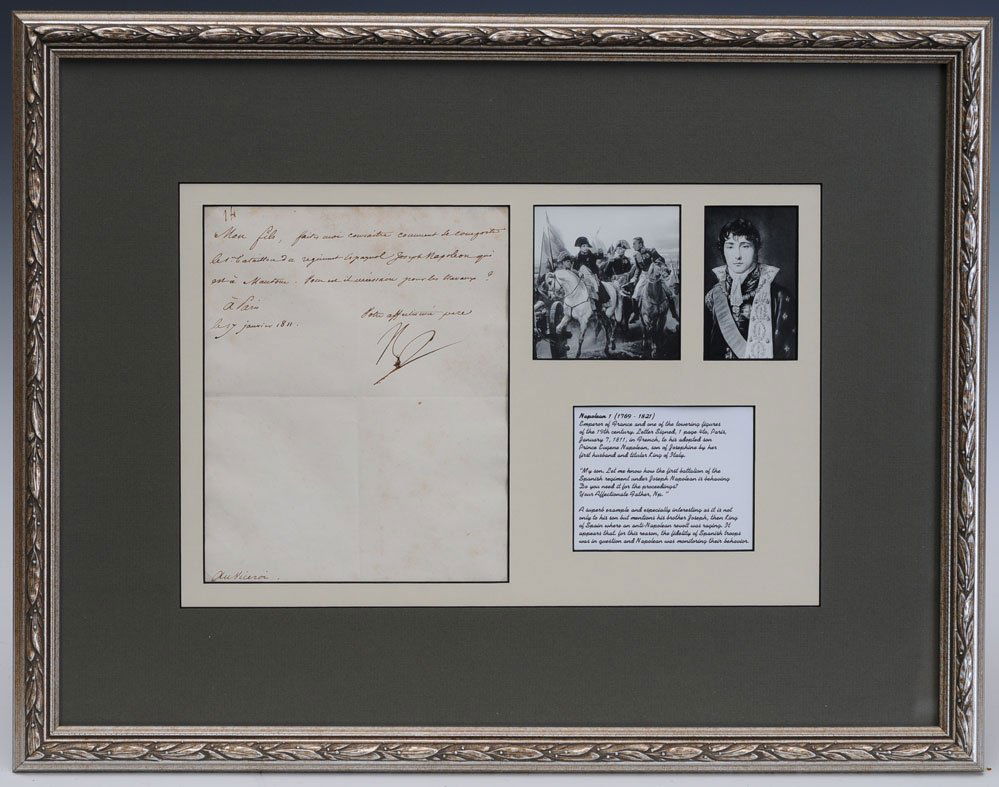 14
Mon fils, faites moi connaître comment se comporte
le 1er Bataillon du régiment Espagnol Joseph Napoléon qui
est à Mantoue. Pour les travaux ?
à Paris
le 17 janvier 1811.
Votre affectionné père
Np
Au Viceroi.
Napolean 1 (1769 - 1821)
Emperor of France and one of the towering figures
of the 19th century. Letter Signed, 1 page 4to, Paris,
January 7, 1811, in French, to his adopted son
Prince Eugene Napolean, son of Josephine by her
first husband and titular King of Italy.
"My son. Let me know how the first battalion of the
Spanish regiment under Joseph Napolean is behaving
Do you need it for the proceedings?
Your Affectionate Father, Np. "
A superb example and especially interesting as it is not
only to his son but mentions his brother Joseph, then King
of Spain where an anti-Napolean revolt was raging. It
appears that for this reason, the fidelity of Spanish troops
was in question and Napolean was monitoring their behavior.